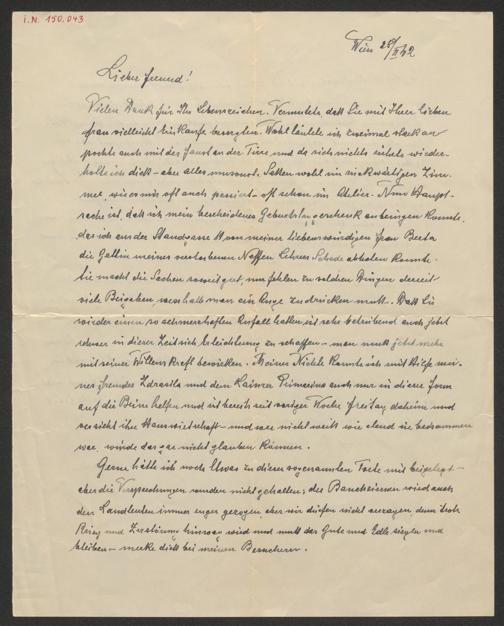 I.N. 150.043
Wien 28/II 42
Lieber Freund!
Vielen Dank für Ihr Lebenszeichen. Vermutete daß Sie mit Ihrer lieben
Frau vielleicht Einkäufe besorgten. Wohl läutete ich zweimal stark an
pochte auch mit der Faust an der Türe und da sich nichts rührte wieder-
holte ich dieß - aber alles umsonst. Saßen wohl im rückwärtigen Zim-
mer, wie es mir oft auch passiert - oft schon im Atelier. Nun Haupt-
sache ist, daß ich mein bescheidenes Geburtstagsgeschenk anbringen konnte,
das ich aus der von meiner liebenswürdigen Frau
die Gattin meines verstorbenen Neffen Lehrer abholen konnte.
Sie macht die Sachen soweit gut, nur fehlen zu solchen Dingen derzeit
viele weshalb man ein Auge zudrücken muß. Daß Sie
wieder einen so schmerzhaften Anfall hatten ist sehr betrübend auch jetzt
schwer in dieser Zeit sich Erleichterung zu schaffen - man muß jetzt mehr
mit seiner Willenskraft bewirken. Meiner Nichte konnte ich mit Hilfe mei-
nes Freundes Zdrazila und dem Primarius auch nur in dieser Form
auf die Beine helfen und ist bereits seit voriger Woche Freitag daheim und
versieht ihre Hauswirtschaft - und wer nicht weiß wie elend sie beisammen
war, würde das gar nicht glauben können.
Gerne hätte ich noch Etwas zu dieser sogenannten Torte mit beigelegt -
aber die Versprechungen wurden nicht gehalten; der wird auch
den Landleuten immer enger gezogen, aber wir dürfen nicht verzagen, denn trotz
Krieg und Zerstörung hinweg wird und muß das Gute und Edle siegen und
bleiben - merke dieß bei meinen Besuchern.